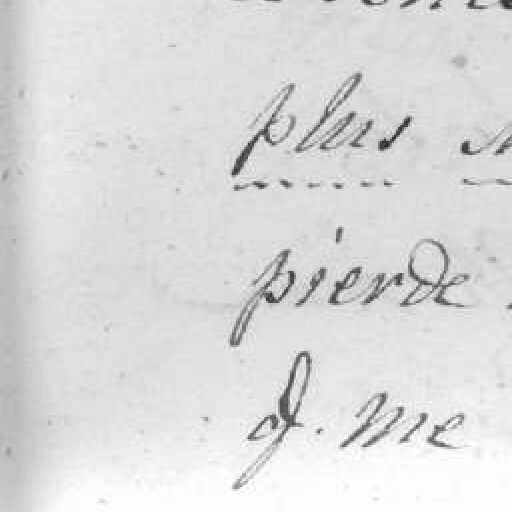 plus
pierde
J. me